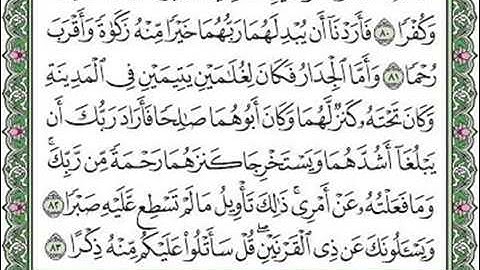 وَكُفْرًا ٨٠ فَأَرَدْنَآ أَن يُبْدِلَهُمَا رَبُّهُمَا خَيْرًا مِّنْهُ زَكَوٰةً وَأَقْرَبَ
رُحْمًا ٨١ وَأَمَّا ٱلْجِدَارُ فَكَانَ لِغُلَٰمَيْنِ يَتِيمَيْنِ فِى ٱلْمَدِينَةِ
وَكَانَ تَحْتَهُۥ كَنزٌ لَّهُمَا وَكَانَ أَبُوهُمَا صَٰلِحًا فَأَرَادَ رَبُّكَ أَن
يَبْلُغَآ أَشُدَّهُمَا وَيَسْتَخْرِجَا كَنزَهُمَا رَحْمَةً مِّن رَّبِّكَ ۚ
وَمَا فَعَلْتُهُۥ عَنْ أَمْرِى ۚ ذَٰلِكَ تَأْوِيلُ مَا لَمْ تَسْطِع عَّلَيْهِ صَبْرًا ٨٢
وَيَسْـَٔلُونَكَ عَن ذِى ٱلْقَرْنَيْنِ ۖ قُلْ سَأَتْلُوا۟ عَلَيْكُم مِّنْهُ ذِكْرًا ٨٣